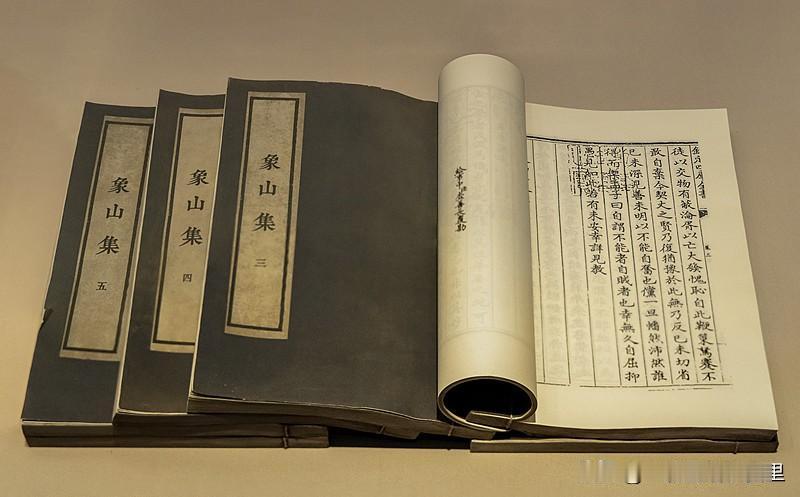 欽定四庫全書
卷三
徒以交物有蔽淪胥以亡大發愧恥自此鞭策駑蹇不
敢自棄今契丈之賢乃復猶豫於此無乃反已未切省
已未深見善未明以不能自奮也儻一旦幡然沛然誰
得而禦孟子曰自謂不能者自賊者也幸無久自屈抑
愚見如此若有未安幸詳見教
象山集 三
象山集 四
象山集 五
里